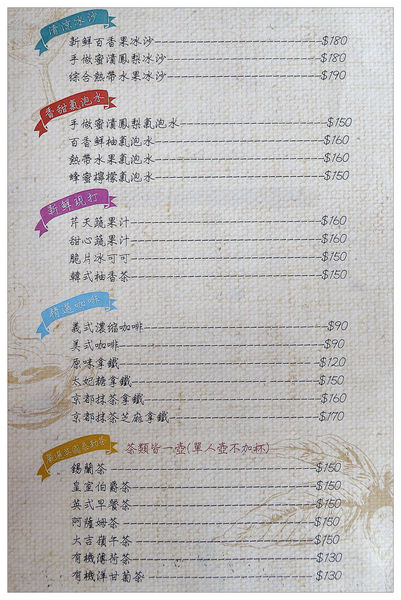 清涼冰沙
新鮮百香果冰沙 $180
手做蜜漬鳳梨冰沙 $180
綜合熱帶水果冰沙 $190
香甜氣泡水
手做蜜漬鳳梨氣泡水 $150
百香鮮柚氣泡水 $160
熱帶水果氣泡水 $160
蜂蜜檸檬氣泡水 $150
新鮮現打
芹天蔬果汁 $160
甜心蔬果汁 $160
脆片冰可可 $150
韓式柚香茶 $150
精選咖啡
義式濃缩咖啡 $90
美式咖啡 $90
原味拿鐵 $120
太妃糖拿鐵 $150
京都抹茶拿鐵 $160
京都抹茶芝麻拿鐵 $170
茶類皆一壺(單人壺不加杯)
錫蘭茶 $150
皇室伯爵茶 $150
英式早餐茶 $150
阿薩姆茶 $150
大吉嶺午茶 $150
有機薄荷茶 $130
有機洋甘菊茶 $130